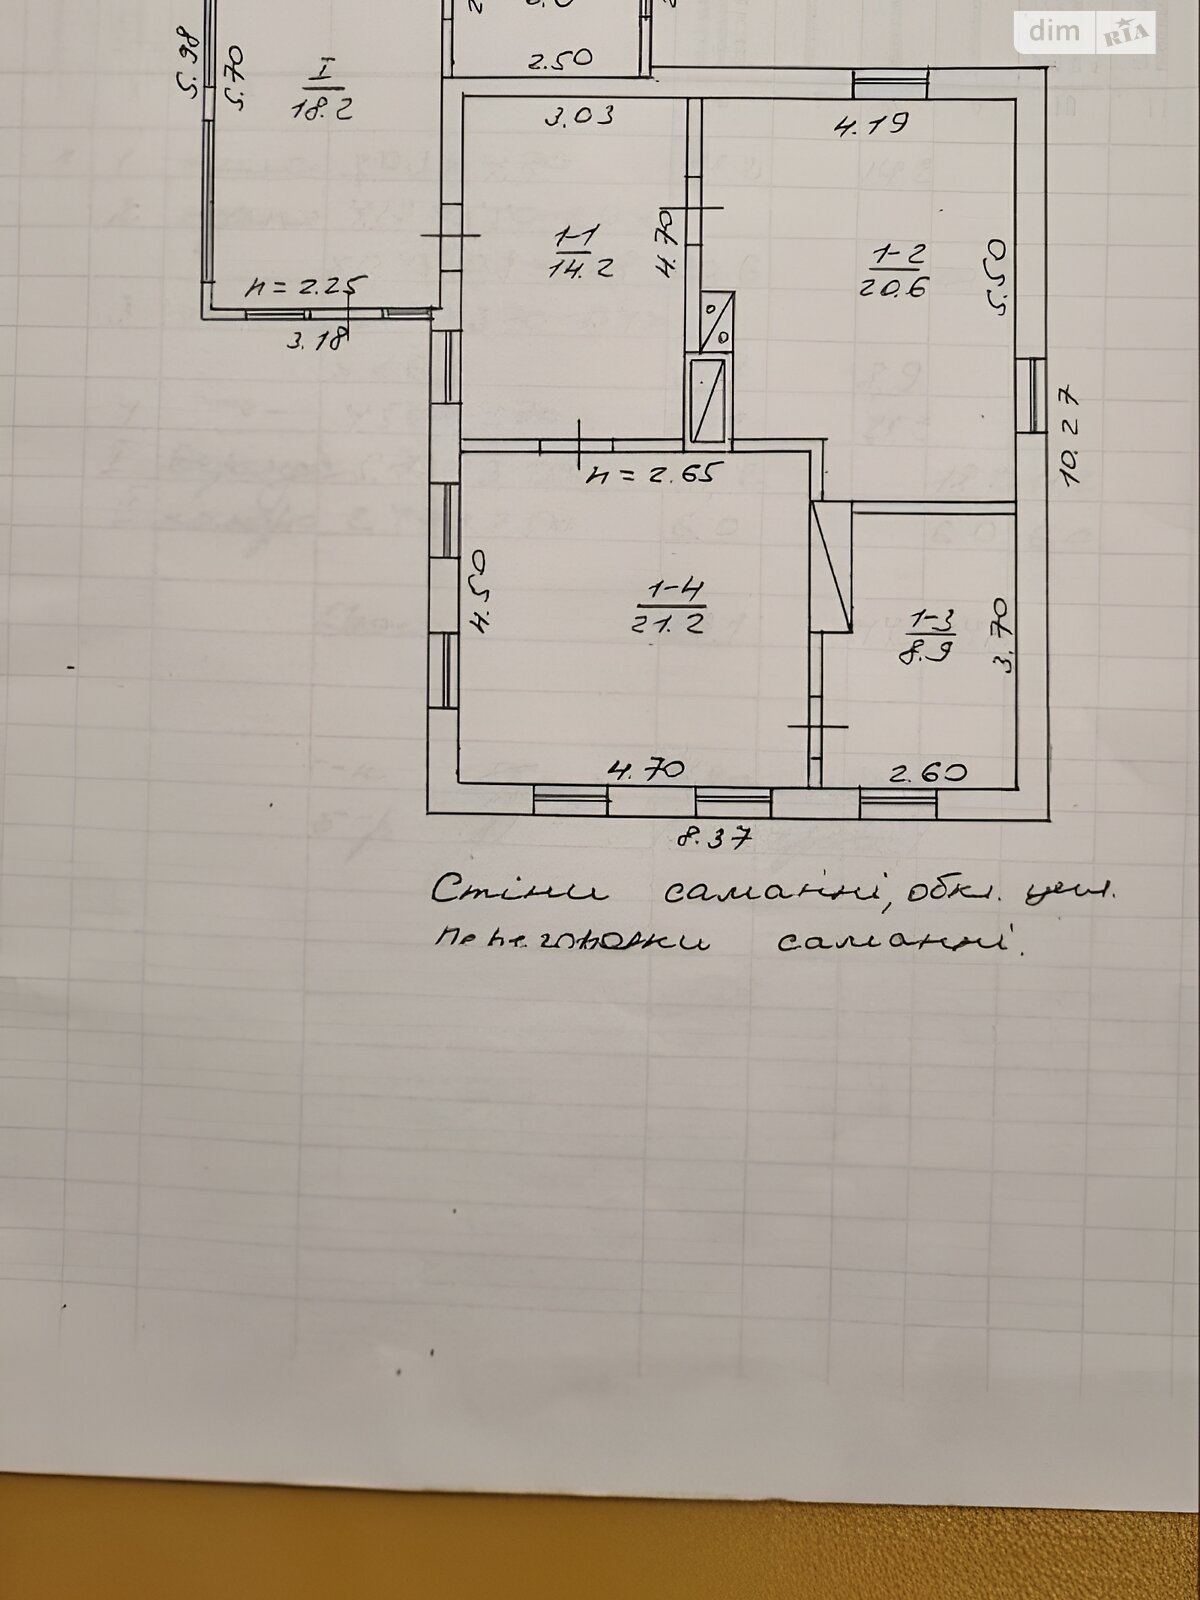 dim RIA
2.50
5.98
5.70
I
18.2
3.03
4.19
1-1
14.2
4.70
1-2
20.6
5.50
h = 2.25
3.18
10.27
h = 2.65
4.50
1-4
21.2
1-3
8.9
3.70
4.70
2.60
8.37
Стіни саманні, обкл. цегл.
Перегородки саманні.